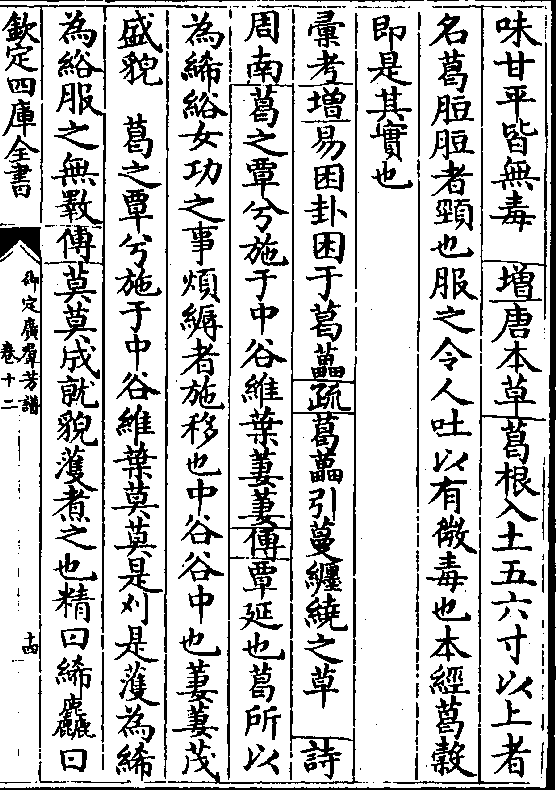 味甘平皆無毒　增唐本草葛根入土五六寸以上者
名葛脰脰者頸也服之令人吐以有微毒也本經葛穀
即是其實也
彚考增易困卦困于葛藟疏葛藟引蔓纏繞之草　詩
周南葛之覃兮施于中谷維葉萋萋傳覃延也葛所以
為絺綌女功之事煩縟者施移也中谷谷中也萋萋茂
盛貌　葛之覃兮施于中谷維葉莫莫是刈是濩為絺
為綌服之無斁傳莫莫成就貌濩煮之也精曰絺麤曰
欽定四庫全書
御定廣羣芳譜
卷十二
十四